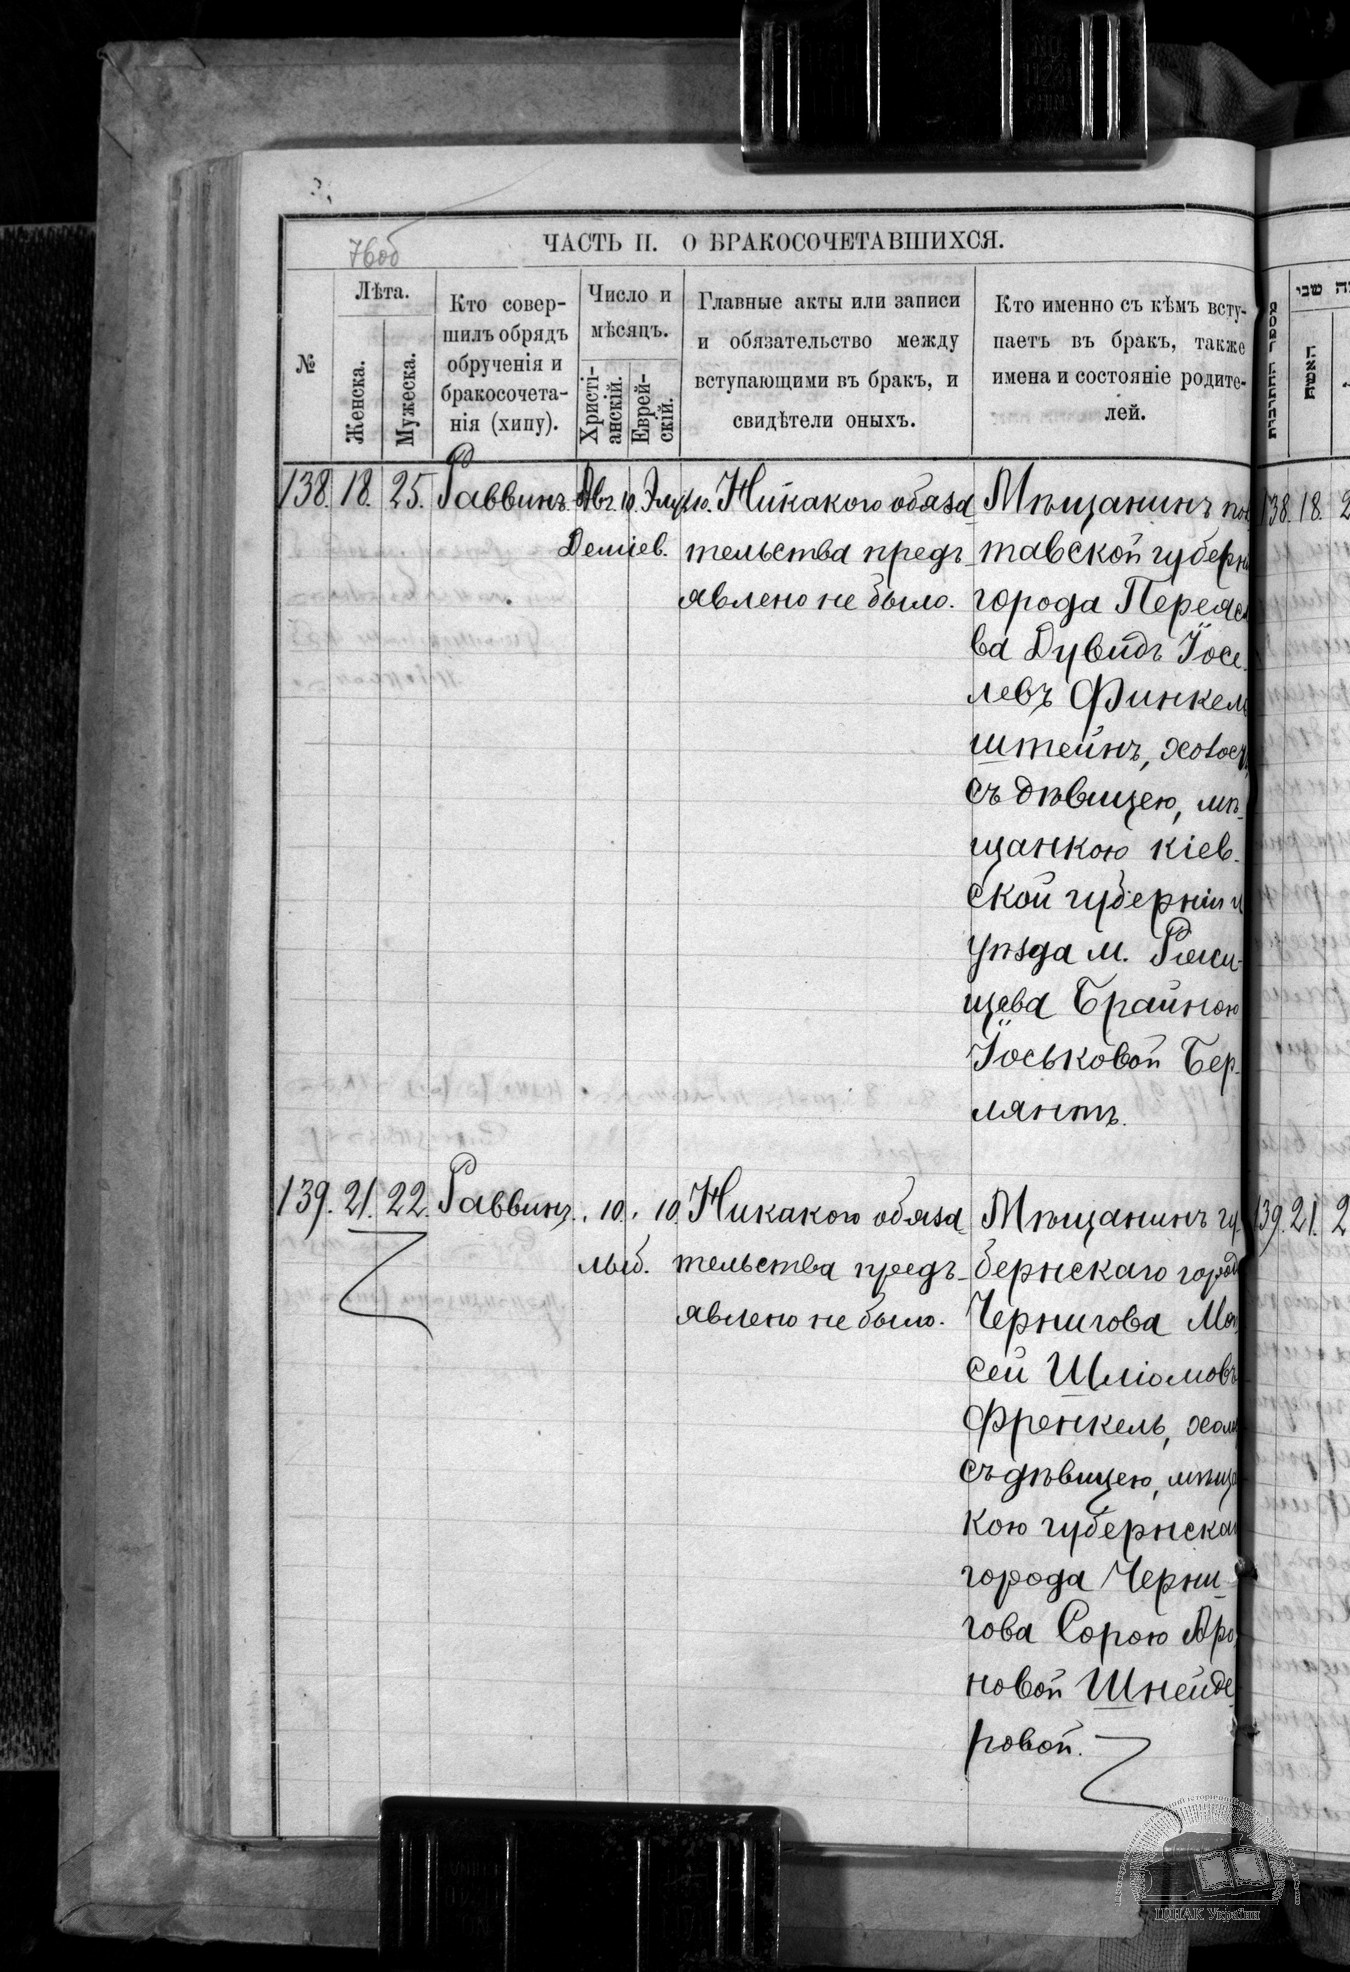 76об
ЧАСТЬ II. О БРАКОСОЧЕТАВШИХСЯ.
№
Лѣта.
Женска.
Мужеска.
Кто совер-
шилъ обрядъ
обрученія и
бракосочета-
нія (хипу).
Число и
мѣсяцъ.
Христі-
анскій.
Еврей-
скій.
Главные акты или записи
и обязательство между
вступающими въ бракъ, и
свидѣтели оныхъ.
Кто именно съ кѣмъ всту-
паетъ въ бракъ, также
имена и состояніе родите-
лей.
138. 18. 25. Раввинъ Авг. 10. 10. Никакого обяза
тельства предъ-
явлено не было.
Мѣщанинъ пол
тавской губерні
города Переясл
ва Дувидъ Іосе-
левъ Финкель
штейнъ, холост,
съ дѣвицею, мѣ-
щанкою кіев-
ской губерніи и
уѣзда м. Ржи-
щева Брайною
Іоськовой Бер-
лянтъ.
139. 21. 22. Раввинъ 10. 10. Никакого обяза
тельства предъ-
явлено не было.
Мѣщанинъ гу-
бернскаго город
Чернигова Мов
сей Шліомовъ
Френкель, холо
съ дѣвицею, мѣща
кою губернскаг
города Черни-
гова Сорою Аро-
новой Шнейде-
ровой.
מספר החתונות
שני
האשה
138. 18. 2
139. 21. 2
ЦДІАК України